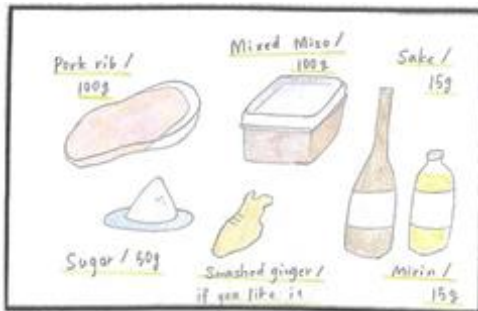 Pork rib /
100g
Mixed Miso /
100g
Sake /
15g
Sugar / 50g
Smashed ginger /
if you like it
Mirin /
15g